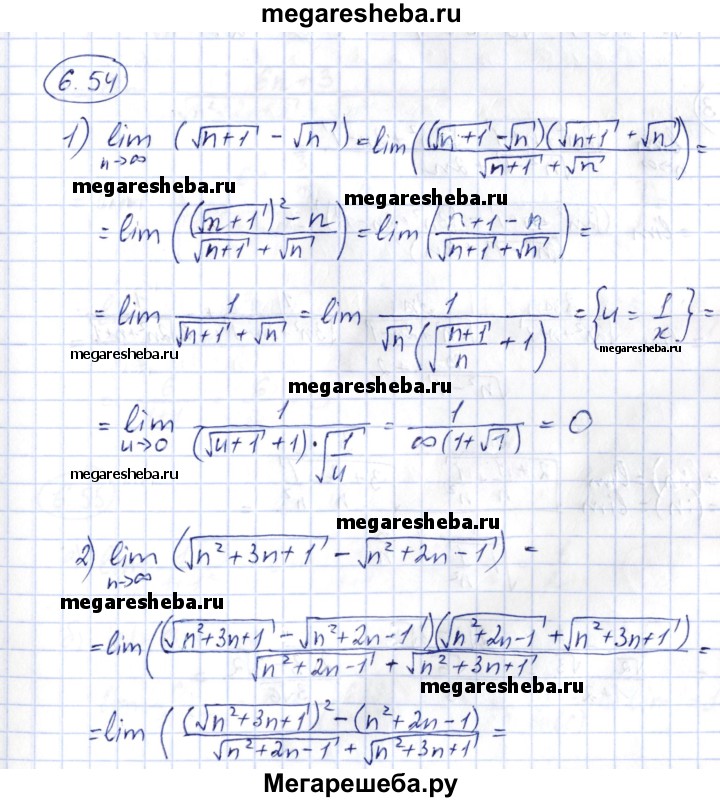 megaresheba.ru
6.54
1) lim n→∞ (√(n+1) − √n) = lim((√(n+1) − √n)(√(n+1) + √n) / (√(n+1) + √n)) =
megaresheba.ru megaresheba.ru
= lim ((√(n+1))² − n / (√(n+1) + √n)) = lim (n+1−n / (√(n+1) + √n)) =
= lim 1 / (√(n+1) + √n) = lim 1 / (√n (√((n+1)/n) + 1)) = {u = 1/x} =
megaresheba.ru megaresheba.ru
megaresheba.ru
= lim u→0 1 / ((√(u+1) + 1) · √(1/u)) = 1 / (∞(1+√1)) = 0
megaresheba.ru
megaresheba.ru
2) lim n→∞ (√(n²+3n+1) − √(n²+2n−1)) =
megaresheba.ru
= lim((√(n²+3n+1) − √(n²+2n−1))(√(n²+2n−1) + √(n²+3n+1)) / (√(n²+2n−1) + √(n²+3n+1))) =
megaresheba.ru
= lim ((√(n²+3n+1))² − (n²+2n−1) / (√(n²+2n−1) + √(n²+3n+1)) =
Мегарешеба.ру